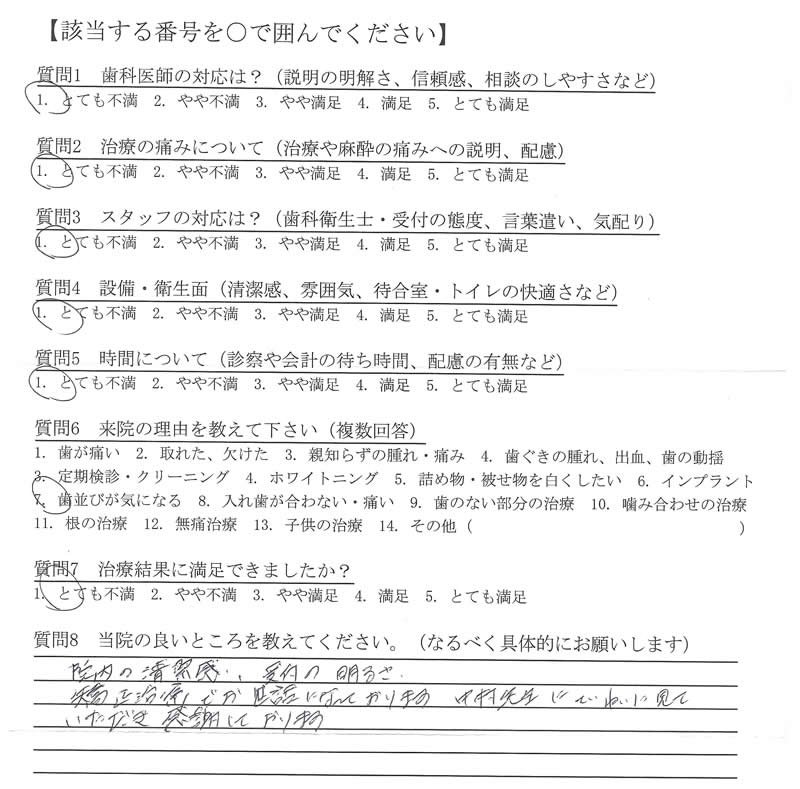 【該当する番号を○で囲んでください】
質問1 歯科医師の対応は？（説明の明解さ、信頼感、相談のしやすさなど）
1. とても不満 2. やや不満 3. やや満足 4. 満足 5. とても満足
質問2 治療の痛みについて（治療や麻酔の痛みへの説明、配慮）
1. とても不満 2. やや不満 3. やや満足 4. 満足 5. とても満足
質問3 スタッフの対応は？（歯科衛生士・受付の態度、言葉遣い、気配り）
1. とても不満 2. やや不満 3. やや満足 4. 満足 5. とても満足
質問4 設備・衛生面（清潔感、雰囲気、待合室・トイレの快適さなど）
1. とても不満 2. やや不満 3. やや満足 4. 満足 5. とても満足
質問5 時間について（診察や会計の待ち時間、配慮の有無など）
1. とても不満 2. やや不満 3. やや満足 4. 満足 5. とても満足
質問6 来院の理由を教えて下さい（複数回答）
1. 歯が痛い 2. 取れた、欠けた 3. 親知らずの腫れ・痛み 4. 歯ぐきの腫れ、出血、歯の動揺
3. 定期検診・クリーニング 4. ホワイトニング 5. 詰め物・被せ物を白くしたい 6. インプラント
7. 歯並びが気になる 8. 入れ歯が合わない・痛い 9. 歯のない部分の治療 10. 噛み合わせの治療
11. 根の治療 12. 無痛治療 13. 子供の治療 14. その他（ ）
質問7 治療結果に満足できましたか？
1. とても不満 2. やや不満 3. やや満足 4. 満足 5. とても満足
質問8 当院の良いところを教えてください。（なるべく具体的にお願いします）
院内の清潔感、受付の明るさ
矯正治療でお世話になっております 中村先生にていねいに見て
いただき感謝しております